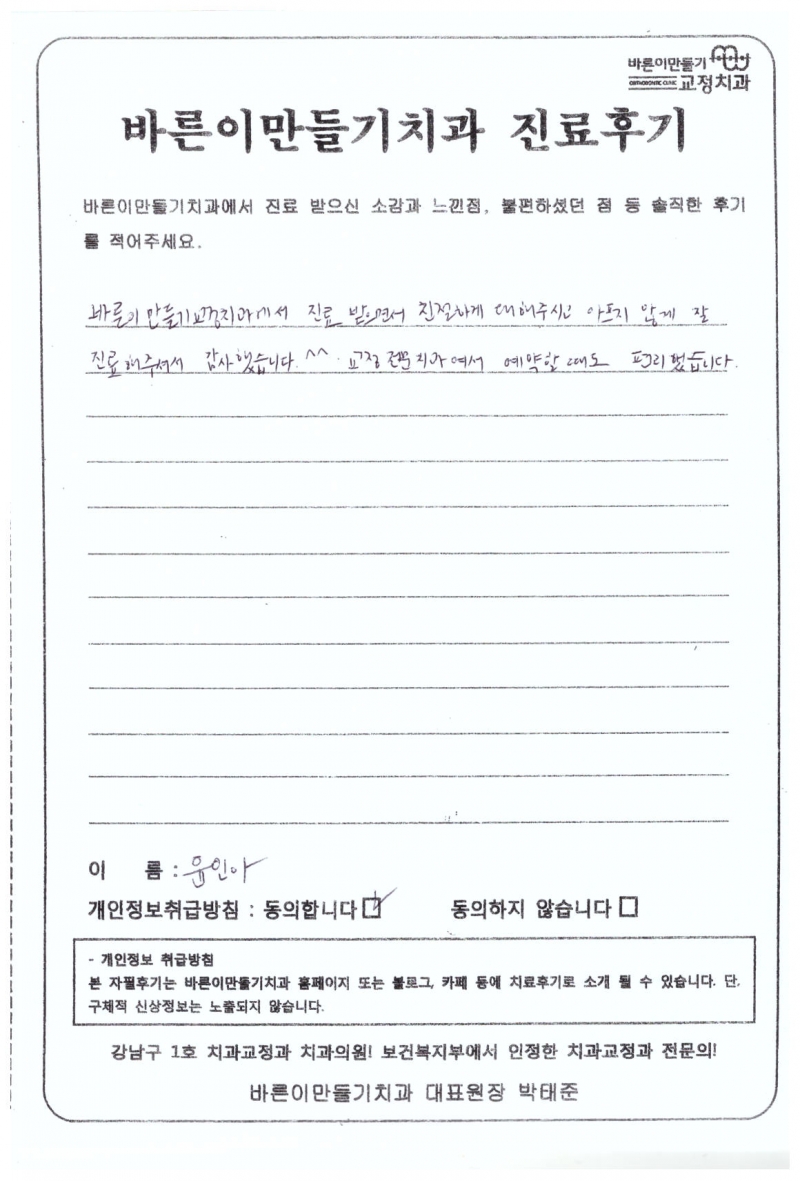 바른이만들기
ORTHODONTIC CLINIC 교정치과
바른이만들기치과 진료후기
바른이만들기치과에서 진료 받으신 소감과 느낀점, 불편하셨던 점 등 솔직한 후기
를 적어주세요.
바른이만들기교정치과에서 진료 받으면서 친절하게 대해주시고 아프지 않게 잘
진료해주셔서 감사했습니다.^^ 교정전문치과여서 예약할때도 편리했습니다.
이 름 : 윤인아
개인정보취급방침 : 동의합니다 동의하지 않습니다
- 개인정보 취급방침
본 자필후기는 바른이만들기치과 홈페이지 또는 블로그, 카페 등에 치료후기로 소개 될 수 있습니다. 단,
구체적 신상정보는 노출되지 않습니다.
강남구 1호 치과교정과 치과의원! 보건복지부에서 인정한 치과교정과 전문의!
바른이만들기치과 대표원장 박태준